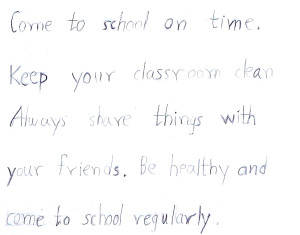 Come to school on time.
Keep your classroom clean
Always share things with
your friends. Be healthy and
come to school regularly.